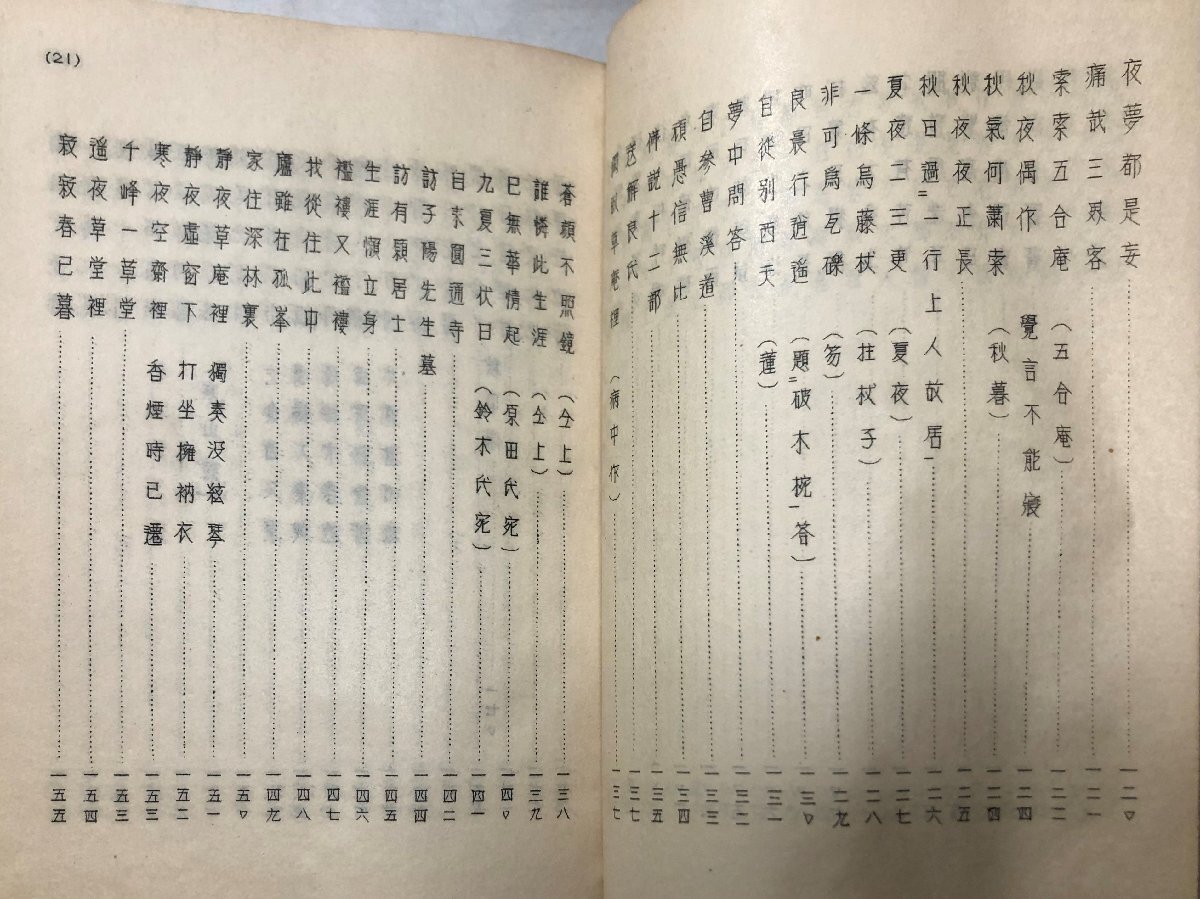 夜夢都是妄……一二〇
痛哉三界客……一二一
索索五合庵（五合庵）……一二二
秋夜偶作 覺言不能寢……一二四
秋氣何蕭索（秋暮）……一二四
秋夜夜正長……一二五
秋日過二一行上人故居一……一二六
夏夜二三更（夏夜）……一二七
一條烏藤杖（拄杖子）……一二八
非可爲瓦礫（笏）……一二九
良晨行逍遙（題二破木椀一答）……一三〇
自從別西天（蓮）……一三一
夢中問答……一三二
自參曹溪道……一三三
頑愚信無比……一三四
傳説十二部……一三五
送解良氏……一三七
草庵裡（病中作）……一三七
(21)
蒼顏不照鏡（仝上）……一三八
誰憐此生涯（仝上）……一三九
已無華情起（原田氏宛）……一四〇
九夏三伏日（鈴木氏宛）……一四一
自来圓通寺……一四二
訪子陽先生墓……一四四
訪有願居士……一四五
生涯懶立身……一四六
襤褸又襤褸……一四七
我從住此中……一四八
廬雖在孤峯……一四九
家住深林裏……一五〇
静夜草庵裡 獨奏没絃琴……一五一
静夜虛窗下 打坐擁衲衣……一五二
寒夜空齋裡 香煙時已遷……一五三
千峰一草堂……一五三
遥夜草堂裡……一五四
寂寂春已暮……一五五